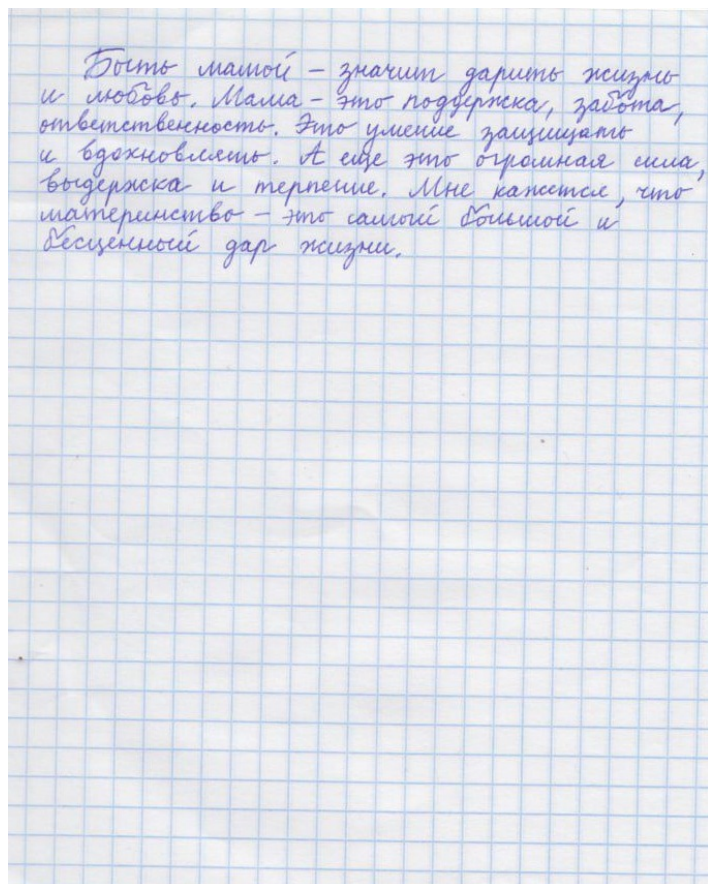 Быть мамой – значит дарить жизнь
и любовь. Мама – это поддержка, забота,
ответственность. Это умение защищать
и вдохновлять. А еще это огромная сила,
выдержка и терпение. Мне кажется, что
материнство – это самый большой и
бесценный дар жизни.